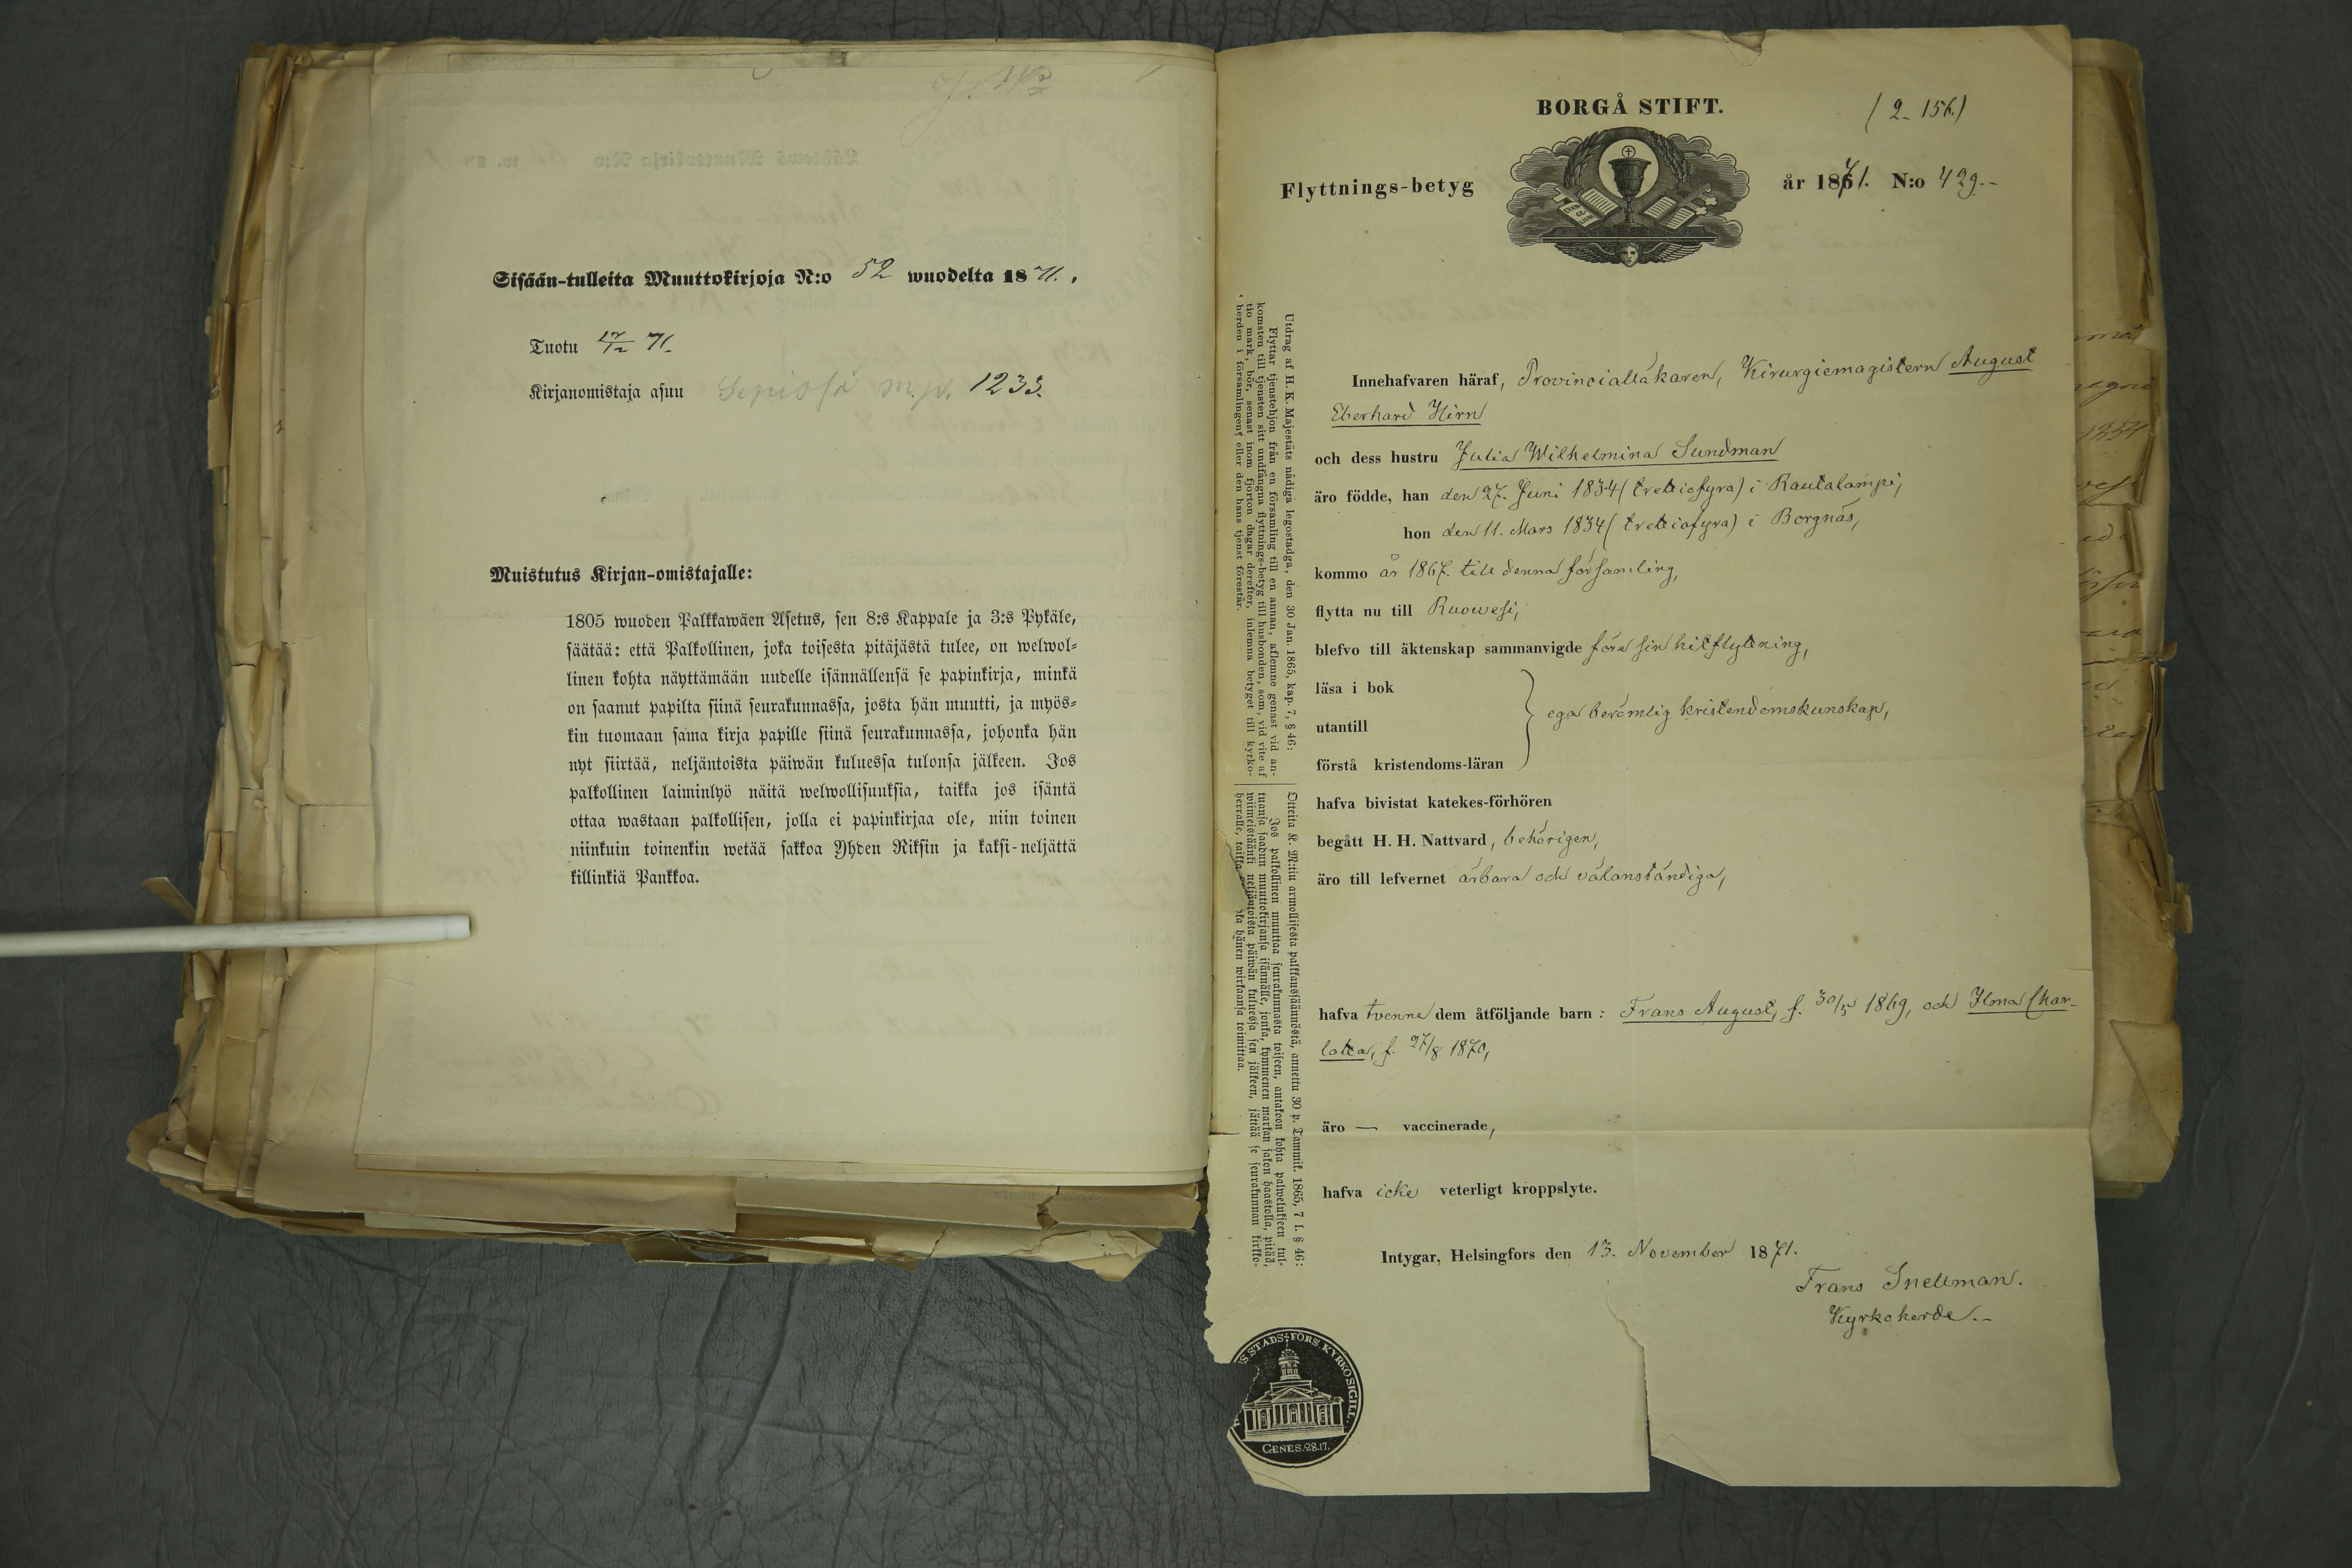 Sisään-tulleita Muuttokirjoja N:o 52 wuodelta 1871.
Tuotu 17/12 71.
Kirjanomistaja asuu m. p. 1233.
Muistutus Kirjan-omistajalle:
1805 wuoden Palkkawäen Asetus, sen 8:s Kappale ja 3:s Pykäle,
säätää: että Palkollinen, joka toisesta pitäjästä tulee, on welwol-
linen kohta näyttämään uudelle isännällensä se papinkirja, minkä
on saanut papilta siinä seurakunnassa, josta hän muutti, ja myös-
kin tuomaan sama kirja papille siinä seurakunnassa, johonka hän
nyt siirtää, neljäntoista päiwän kuluessa tulonsa jälkeen. Jos
palkollinen laiminlyö näitä welwollisuuksia, taikka jos isäntä
ottaa wastaan palkollisen, jolla ei papinkirjaa ole, niin toinen
niinkuin toinenkin wetää sakkoa Yhden Riksin ja kaksi-neljättä
killinkiä Pankkoa.
BORGÅ STIFT.
(2-156.)
Flyttnings-betyg
EVAN
GE-
LIUM
år 1871. N:o 429.-
Utdrag af H. K. Majestäts nådiga legostadga, den 30 Jan. 1865, kap. 7, § 46:
Flyttar tjenstehjon från en församling till en annan, aflemne genast vid an-
komsten till tjensten sitt undfångna flyttnings-betyg till husbonden, som, vid vite af
tio mark, bör, senast inom fjorton dagar derefter, inlemna betyget till kyrko-
herden i församlingen, eller den hans tjenst förestår.
Otteita K. M:tin armollisesta palkkaussäännöstä, annettu 30 p. Tammik. 1865, 7 l. § 46:
Jos palkollinen muuttaa seurakunnasta toiseen, antakoon kohta palwelukseen tul-
tuonsa saadun muuttokirjansa isännälle, jonka, kymmenen markan sakon haastolla, pitää,
wiimeistäänki neljäntoista päiwän kuluessa sen jälkeen, jättää se seurakunnan kirkko-
herralle, taikka hänen wirkaansa toimittaa.
Innehafvaren häraf, Provincialläkaren, Kirurgiemagistern August
Eberhard Hirn
och dess hustru Julia Wilhelmina Sundman
äro födde, han den 27. Juni 1834 (trettiofyra) i Rautalampi,
hon den 11. Mars 1834 (trettiofyra) i Borgnäs,
kommo år 1867. till denna församling,
flytta nu till Ruowesi,
blefvo till äktenskap sammanvigde före sin hitflyttning,
läsa i bok
utantill
förstå kristendoms-läran
ega berömlig kristendomskunskap,
hafva bivistat katekes-förhören
begått H. H. Nattvard, behörigen,
äro till lefvernet ärbara och välanständiga,
hafva tvenne dem åtföljande barn: Frans August, f. 30/5 1869, och Ilona Char-
lotta, f. 27/8 1870,
äro — vaccinerade,
hafva icke veterligt kroppslyte.
Intygar, Helsingfors den 13. November 1871.
Frans Snellman.
Kyrkoherde.-
S STADS FÖRS. KYRKOSIGILL.
GENES. 28.17.